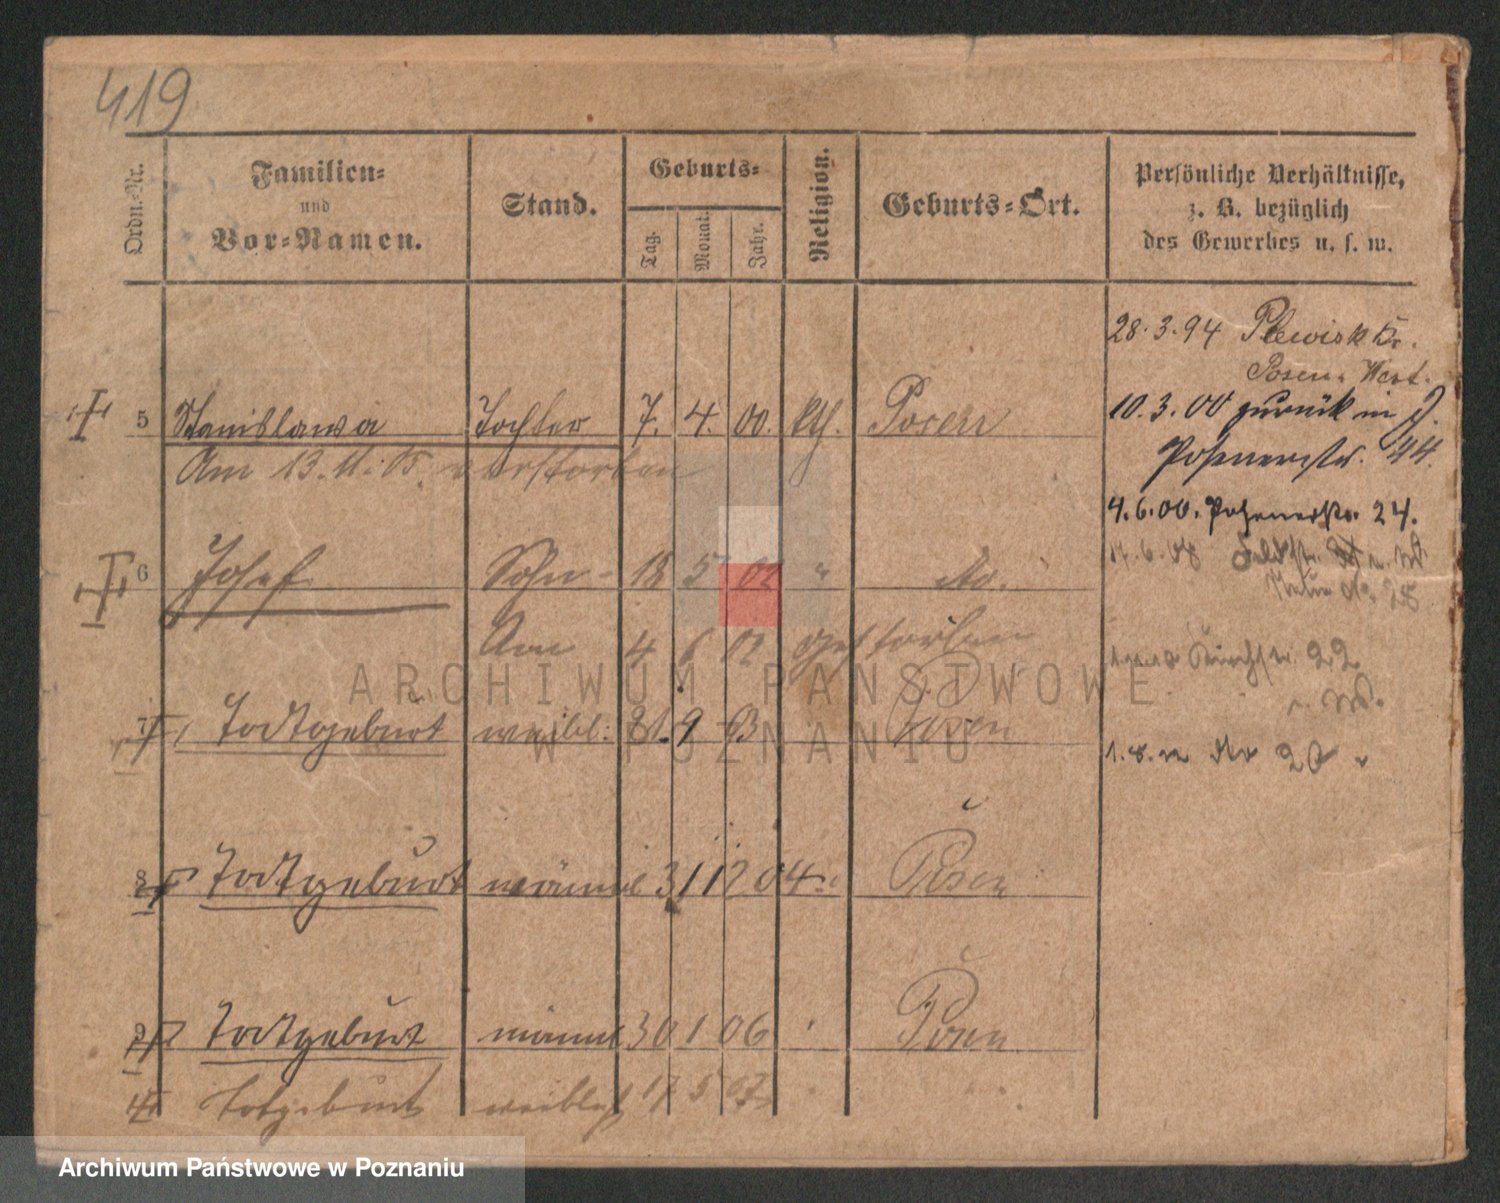 419
Ordn.-Nr.
Familien-
und
Vor-Namen.
Stand.
Geburts-
Tag.
Monat.
Jahr.
Religion.
Geburts-Ort.
Persönliche Verhältnisse,
z. B. bezüglich
des Gewerbes u. s. w.
28.3.94 Plewisk Kr.
Posen. West.
5 Stanislawa Tochter 7. 4. 00. kth. Posen
10.3.00 zurück in J.
Posenerstr. 44.
Am 13. 11. 05. verstorben
4.6.00. Posenerstr. 24.
6 Josef Sohn 18 5 02 " do.
28
Am 4 6 02 gestorben
Kirchstr. 22
7 Todtgeburt weibl: 21. 9 03 Posen
1.8. do 20 "
8 Todtgeburt männl 31 12 04 Posen
9 Todtgeburt männl 30 1 06 Posen
Totgeburt weiblich 17 5 07
ARCHIWUM PAŃSTWOWE
W POZNANIU
Archiwum Państwowe w Poznaniu